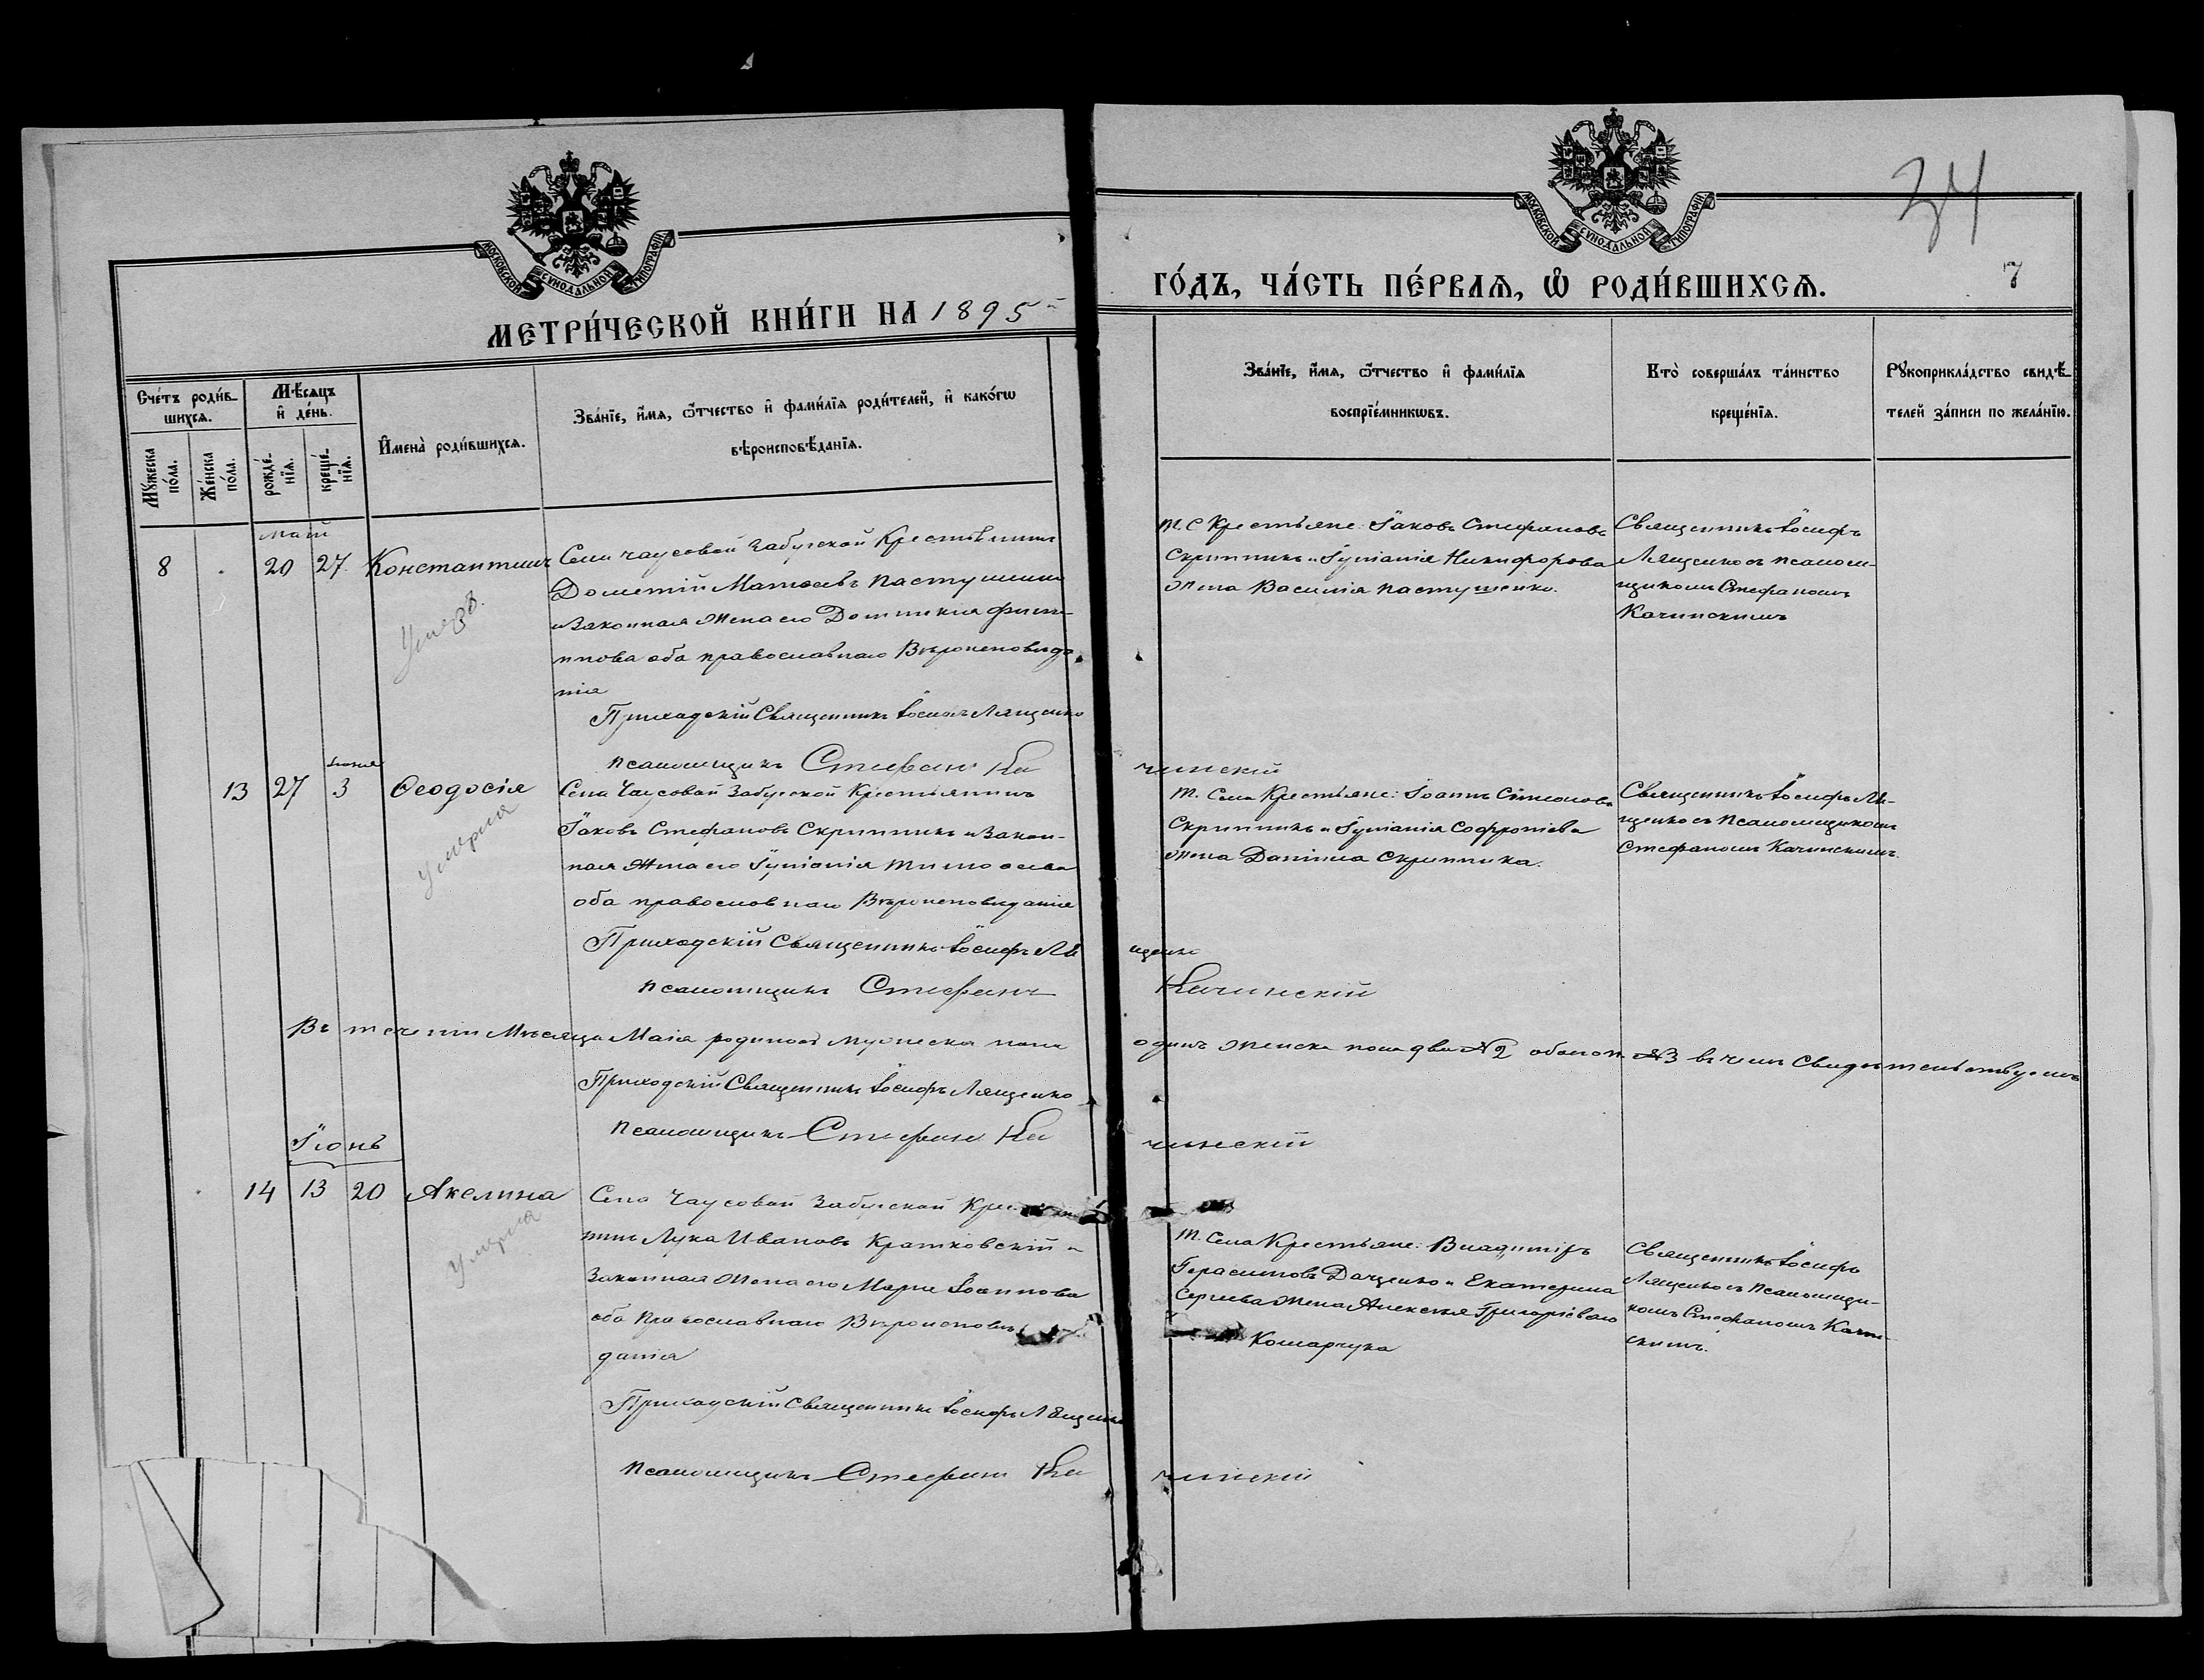 34
МОСКОВСКОЙ СѴНОДАЛЬНОЙ ТИПОГРАФІИ
МОСКОВСКОЙ СѴНОДАЛЬНОЙ ТИПОГРАФІИ
МЕТРИ́ЧЕСКОЙ КНИ́ГИ НА 1895
ГО́ДЪ, ЧА́СТЬ ПЕ́РВАѦ, Ѡ҆ РОДИ́ВШИХСѦ.
7
Сче́тъ роди́в-
шихсѧ.
Мѣ́сѧцъ
и҆ де́нь.
И҆мена̀ роди́вшихсѧ.
Зва́нїе, и҆́мѧ, ѻ҆́тчество и҆ фами́лїѧ роди́телей, и҆ како́гѡ
вѣроисповѣ́данїѧ.
Мꙋ́жеска по́ла.
Же́нска по́ла.
рожде́-
нїѧ.
креще́-
нїѧ.
Зва́нїе, и҆́мѧ, ѻ҆́тчество и҆ фами́лїѧ
воспрїе́мникѡвъ.
Кто̀ соверша́лъ та́инство
креще́нїѧ.
Рꙋкоприкла́дство свидѣ́-
телей за́писи по жела́нїю.
май
8 20 27 Константинъ
Умеръ.
Села Чаусовой Забугской Крестьянинъ
Дометій Матѳеевъ Пастушенко
и Законная Жена его Домникія Фили-
ппова оба православнаго Вѣроисповѣда-
нія
Приходскій Священникъ Іосифъ Лященко
псаломщикъ Стефанъ Ка
чинскій
Т. С Крестьяне: Іаковъ Стефановъ
Скрипникъ и Іуліанія Никифорова
Жена Василія Пастушенко.
Священникъ Іосифъ
Лященко съ псалом-
щикомъ Стефаномъ
Качинскимъ
13 27 Іюня 3 Ѳеодосія
Умерла
Села Чаусовой Забугской Крестьянинъ
Іаковъ Стефановъ Скрипникъ и Закон-
ная Жена его Іуліанія Тимоѳеева
оба православнаго Вѣроисповѣданія
Приходскій Священникъ Іосифъ Ля
щенко
псаломщикъ Стефанъ
Качинскій
Т. Села Крестьяне: Іоаннъ Симеоновъ
Скрипникъ и Іуліанія Софроніева
Жена Даніила Скрипника.
Священникъ Іосифъ Ля-
щенко съ Псаломщикомъ
Стефаномъ Качинскимъ.
Въ теченіи Мѣсяца Маія родилось мужеска пола
одинъ женска пола два №2 обоего п. №3 въ чемъ Свидѣтельствуемъ
Приходскій Священникъ Іосифъ Лященко
Псаломщикъ Стефанъ Ка
чинскій
Іюнь
14 13 20 Акелина
Умерла
Села Чаусовой Забугской
Лука Ивановъ Кратковскій и
Законная Жена его Марія Іоаннова
оба Православнаго Вѣроисповѣ
данія
Приходскій Священникъ Іосифъ Лященко
Псаломщикъ Стефанъ Ка
чинскій
Т. Села Крестьяне: Владиміръ
Герасимовъ Даценко и Екатерина
Сергіева Жена Алексѣя Григоріеваго
Комарчука
Священникъ Іосифъ
Лященко съ Псаломщи-
комъ Стефаномъ Качин-
скимъ.